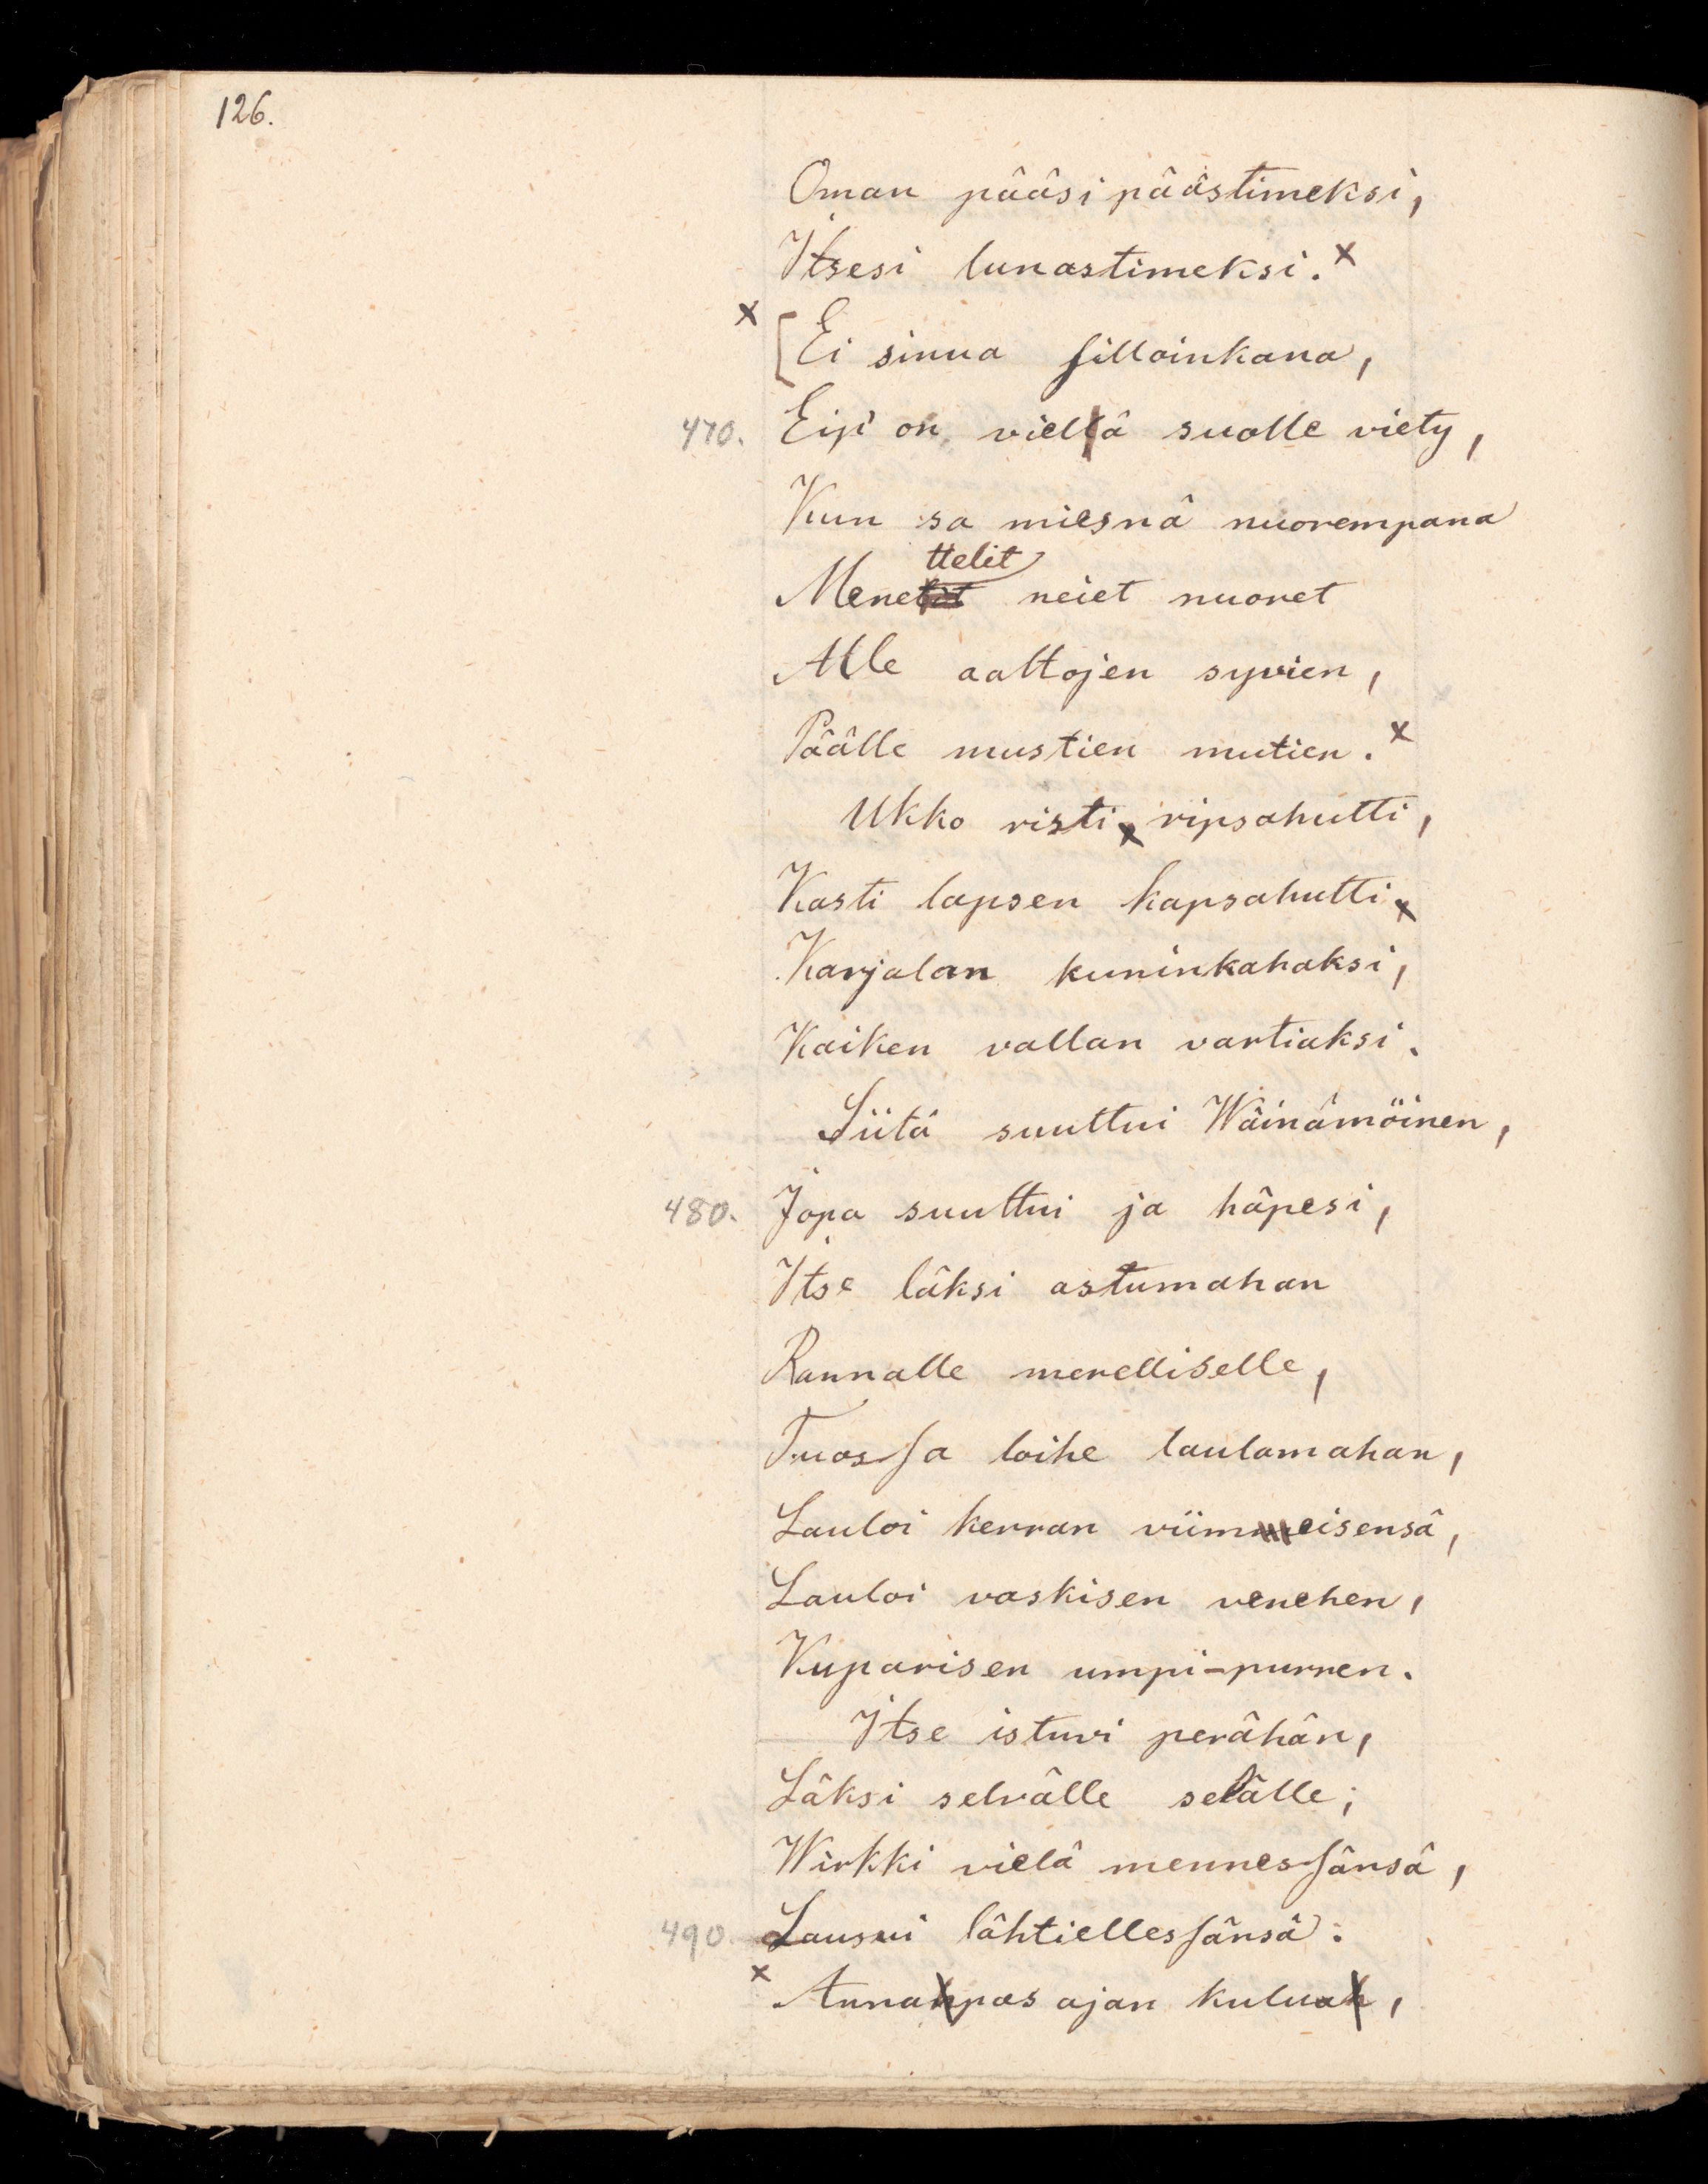 126.
Oman pääsi päästimeksi,
Itsesi lunastimeksi. x
x
[Ei sinua silloinkana,
470. Eipä on viellä suolle viety,
Kun sa miesnä nuorempana
ttelit
Menetit neiet nuoret
Alle aaltojen syvien,
Päälle mustien mutien. x
Ukko risti x ripsahutti,
Kasti lapsen kapsahutti x
Karjalan kuninkahaksi,
Kaiken vallan vartiaksi.
Siitä suuttui Wäinämöinen,
480. Jopa suuttui ja häpesi,
Itse läksi astumahan
Rannalle merelliselle,
Tuossa loihe laulamahan,
Lauloi kerran viimmeisensä,
Lauloi vaskisen venehen,
Kuparisen umpi-purren.
Itse istuvi perähän,
Läksi selvälle selälle;
Wirkki vielä mennessänsä,
490. Lausui lähtiellessänsä:
x
Annakpas ajan kuluak,